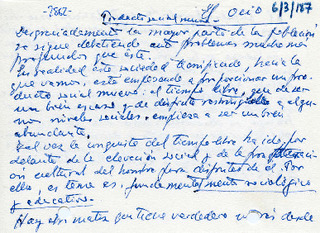 -2862-
Producto social nuevo El Ocio 6/3/87
Desgraciadamente la mayor parte de la población
se sigue debatiendo ante problemas mucho mas
profundos que éste.
En realidad esta sociedad tecnificada, hacia la
que vamos, está empezando a proporcionar un pro-
ducto social nuevo: el tiempo libre, que de ser
un bien escaso y de disfrute restringido a algu-
nos niveles sociales, empieza a ser un bien
abundante.
Tal vez la conquista del tiempo libre ha ido por
delante de la elevación social y de la
ción cultural del hombre para disfrutar de él. Por
ello, el tema es fundamentalmente sociológico
y educativo.
Hay otro matiz que tiene verdadero desde